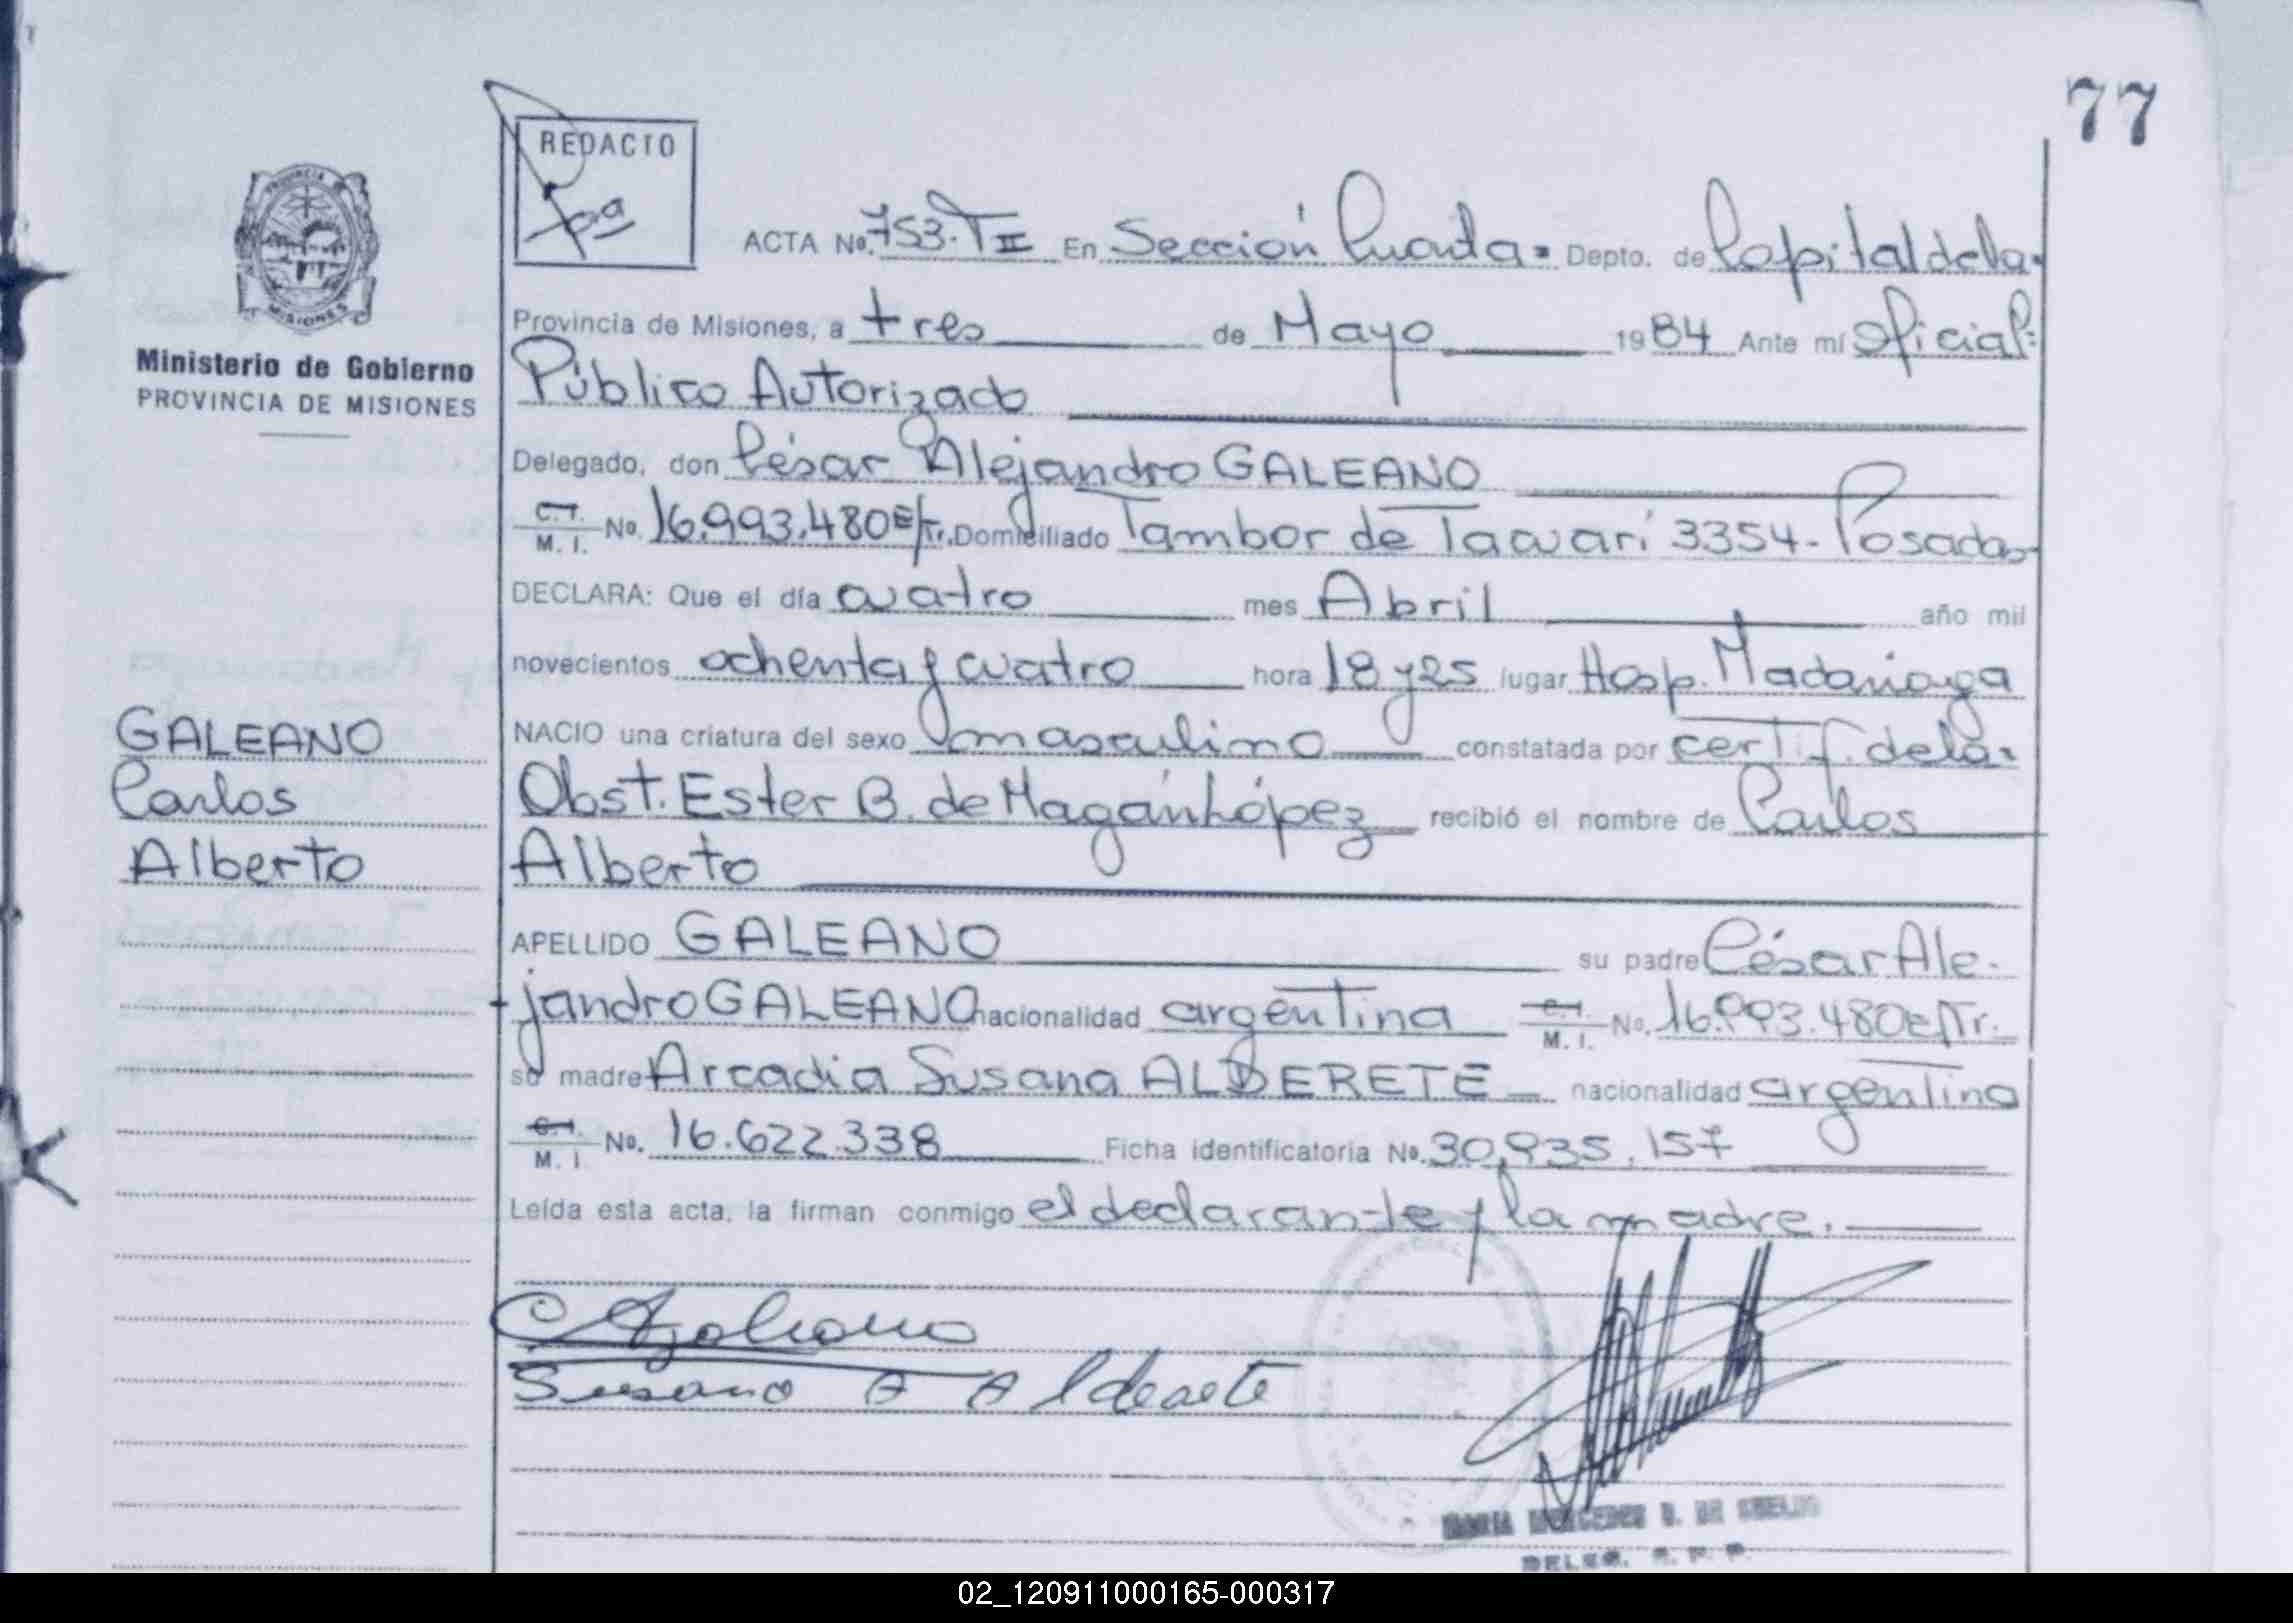 77
REDACTO
PROVINCIA DE
MISIONES
Ministerio de Gobierno
PROVINCIA DE MISIONES
ACTA No. 753. T II En Sección Cuarta = Depto. de Capital de la =
Provincia de Misiones, a tres de Mayo 1984 Ante mí Oficial =
Público Autorizado
Delegado, don César Alejandro GALEANO
C.I. M. I. No. 16.993.480 E/Tr. Domiciliado Tambor de Tacuarí 3354 - Posadas
DECLARA: Que el día cuatro mes Abril año mil
novecientos ochenta y cuatro hora 18 y 25 lugar Hosp. Madariaga
NACIO una criatura del sexo masculino constatada por certif. de la =
Obst. Ester B. de Magán López recibió el nombre de Carlos
Alberto
APELLIDO GALEANO su padre César Ale-
jandro GALEANO nacionalidad argentina C.I. M. I. No. 16.993.480 E/Tr.
su madre Arcadia Susana ALDERETE nacionalidad argentina
C.I. M. I No. 16.622.338 Ficha identificatoria No. 30.935.157
Leída esta acta, la firman conmigo el declarante y la madre.
GALEANO
Carlos
Alberto
Susana A Alderete
MARIA MERCEDES
DELEG.
02_120911000165-000317